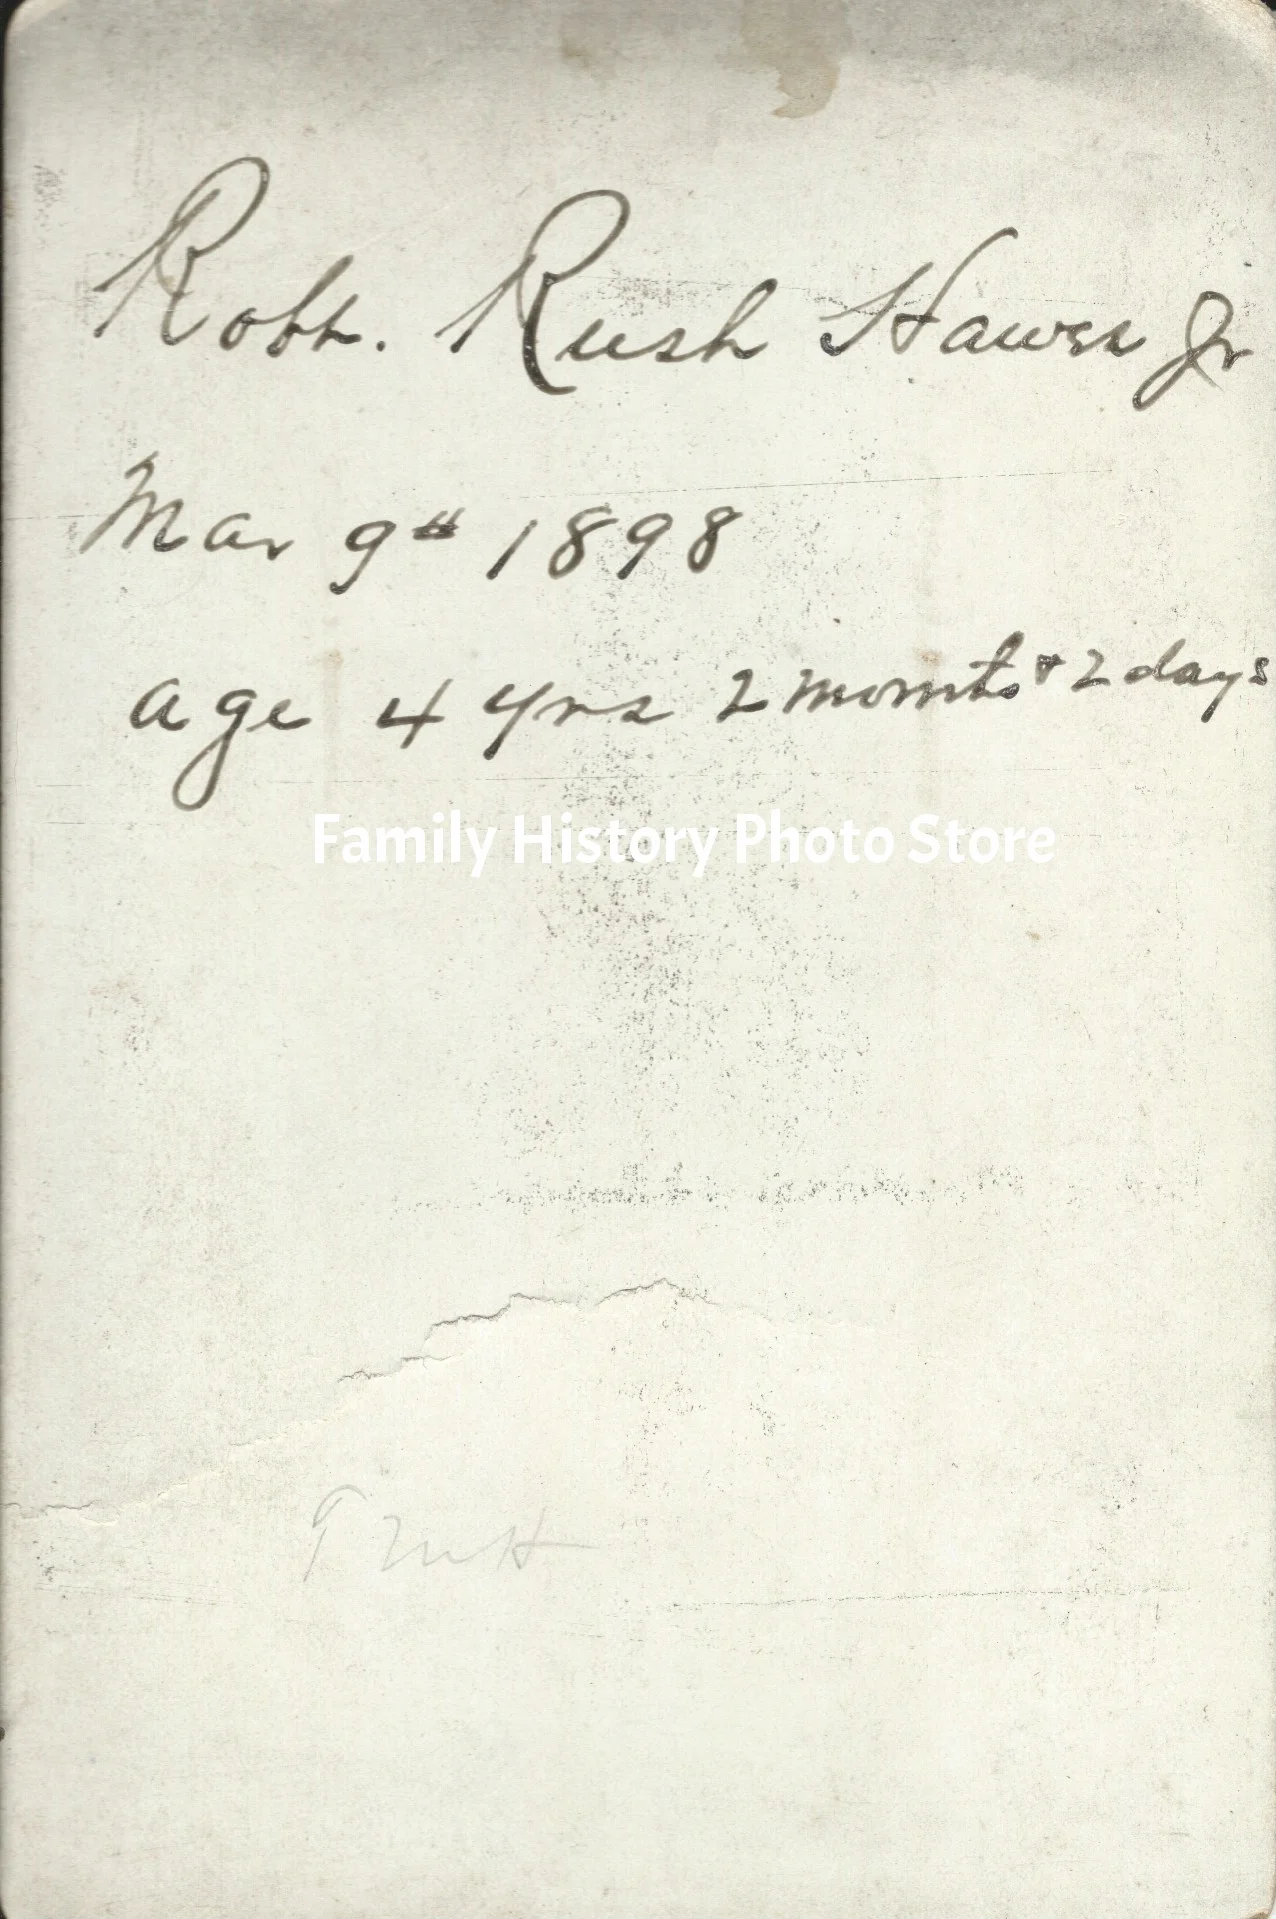 Robt. Rush Hawes Jr
Mar 9th 1898
age 4 yrs 2 months & 2 days
Family History Photo Store